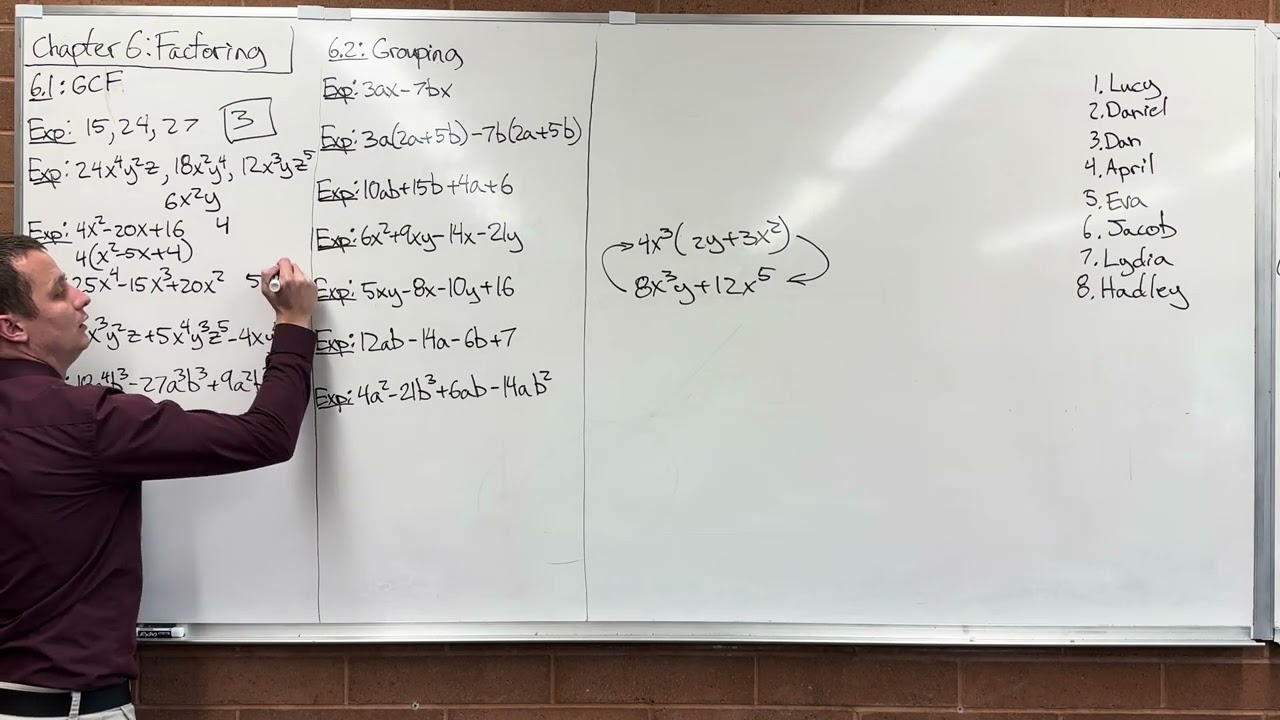 Chapter 6: Factoring
6.1: GCF
Exp: 15, 24, 27 3
Exp: 24x⁴y²z, 18x²y⁴, 12x³yz⁵
6x²y
Exp: 4x²-20x+16 4
4(x²-5x+4)
25x⁴-15x³+20x² 5
x³y²z+5x⁴y³z⁵-4xy
-27a³b³+9a²b
6.2: Grouping
Exp: 3ax-7bx
Exp: 3a(2a+5b)-7b(2a+5b)
Exp: 10ab+15b+4a+6
Exp: 6x²+9xy-14x-21y
Exp: 5xy-8x-10y+16
Exp: 12ab-14a-6b+7
Exp: 4a²-21b³+6ab-14ab²
4x³(2y+3x²)
8x³y+12x⁵
1. Lucy
2. Daniel
3. Dan
4. April
5. Eva
6. Jacob
7. Lydia
8. Hadley
EXPO